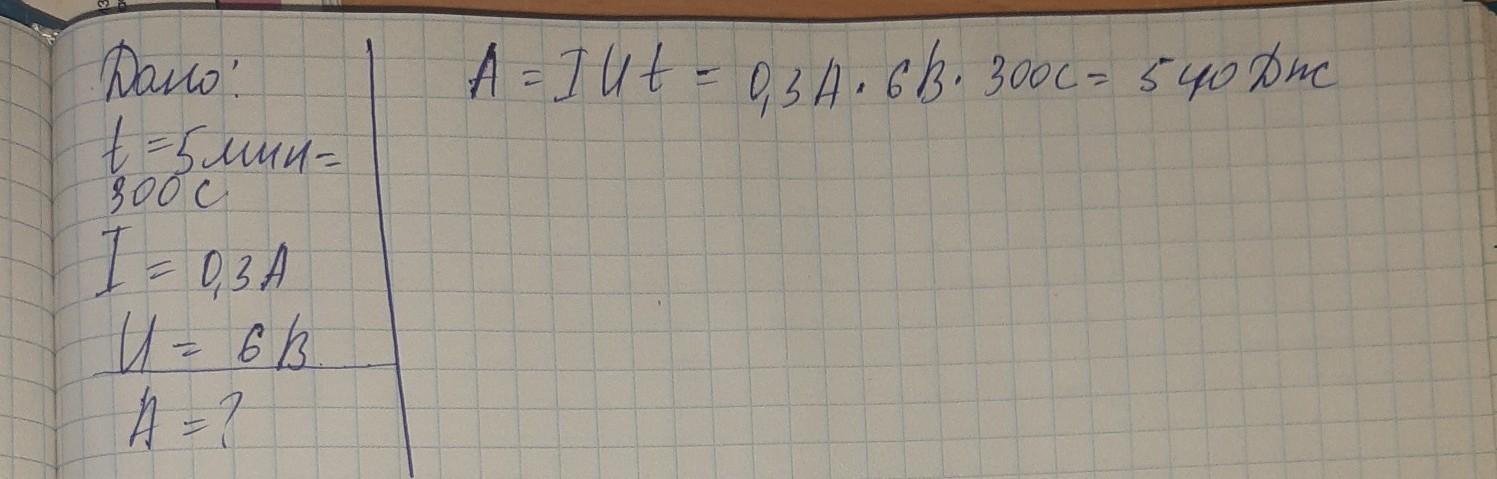 Дано:
t = 5 мин =
300 с
I = 0,3 А
U = 6 В
А = ?
А = I U t = 0,3 А · 6 В · 300 с = 540 Дж